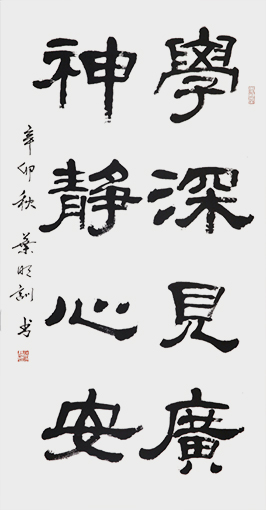 學深見廣
神靜心安
辛卯秋 葉明訓書